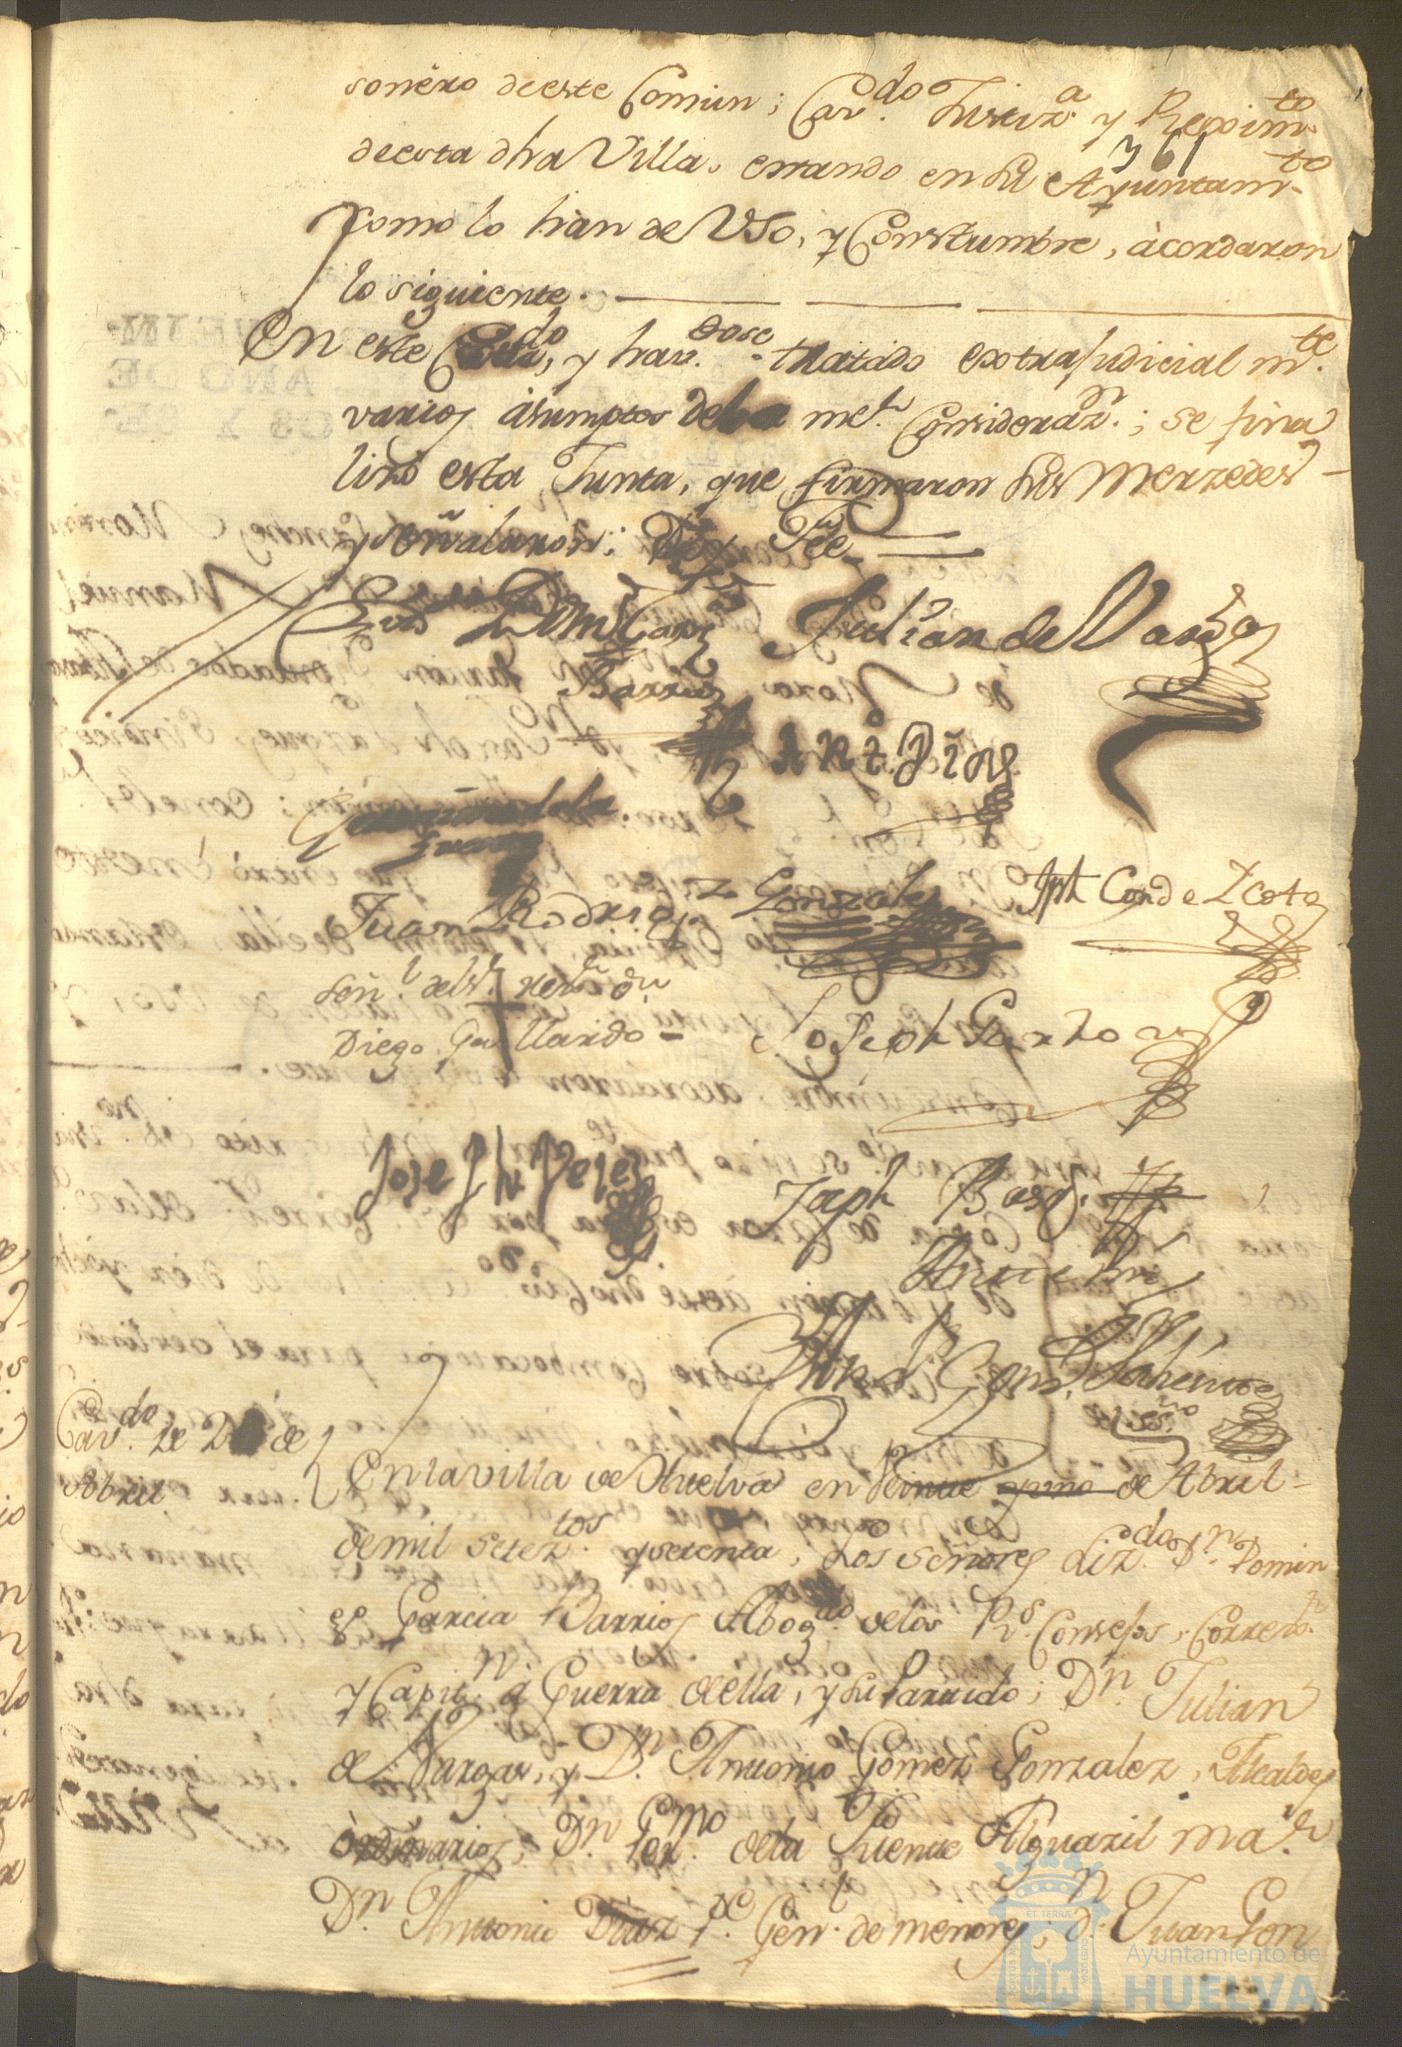 sonero de este Comun; Cav.do Justiz.a y Reximto
361
de esta dha Villa, estando en su Ayuntamto
como lo han de Uso, y Constumbre, acordaron
lo siguiente.
En este Cavdo, y hav.dose tratado extrajudicialm.te
varios asumptos de la m.r Consideraz.n; se fina
lizó esta Junta, que firmaron sus Merzedes
y señalaron; Doy Fee
Lizdo Domo Garz.a Julian de Vargas
Barrios
Anto Diaz
Germo de la
Fuente
Juan Rodrigz Gonzales Jph Conde Zcota
Señ.l del Sr. Rexr Dn
Diego Gallardo Joseph Garzia
Joseph Perez Joseph
Ante mi
Gom.
Esno
Cav.do de 2 de
Abril
En la villa de Huelva en Veinte y uno de Abril
de mil Setez.tos y setenta, Los Señores Liz.do Dn Domin
go Garcia Barrios Abog.do de los R.s Consejos, Correx.r
y Capit.n a Guerra de ella, y su Partido; Dn Julian
de Vargas, y Dn Antonio Gomez Gonzalez, Alcaldes
ordinarios, Dn Ger.mo de la Fuente Alguazil ma.r
Dn Antonio Diaz P.e Gen.l de menores; Dn Juan Gon
Ayuntamiento de
HUELVA